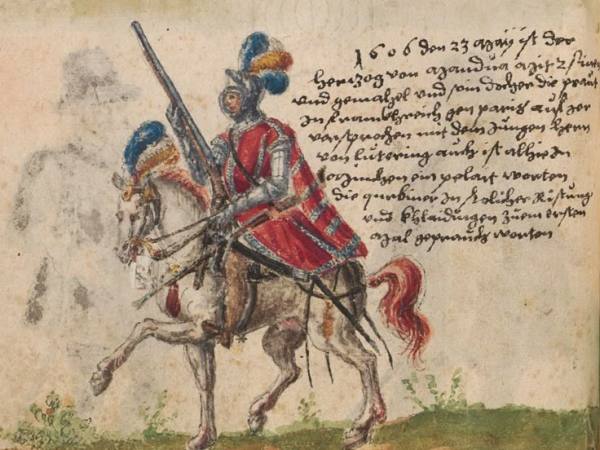 1606 den 23 Mäÿ ist der
hertzog von Mandua Mit 2 sün
und gemahel und sein dochter die praut
In franckhreich gen paris auf der
versprochen mit dem Jungen hern
von lutering auch ist alhie In
München ein worten
die In solicher Rüstung
und khlaidungen zuem ersten
Mal geprauch worten